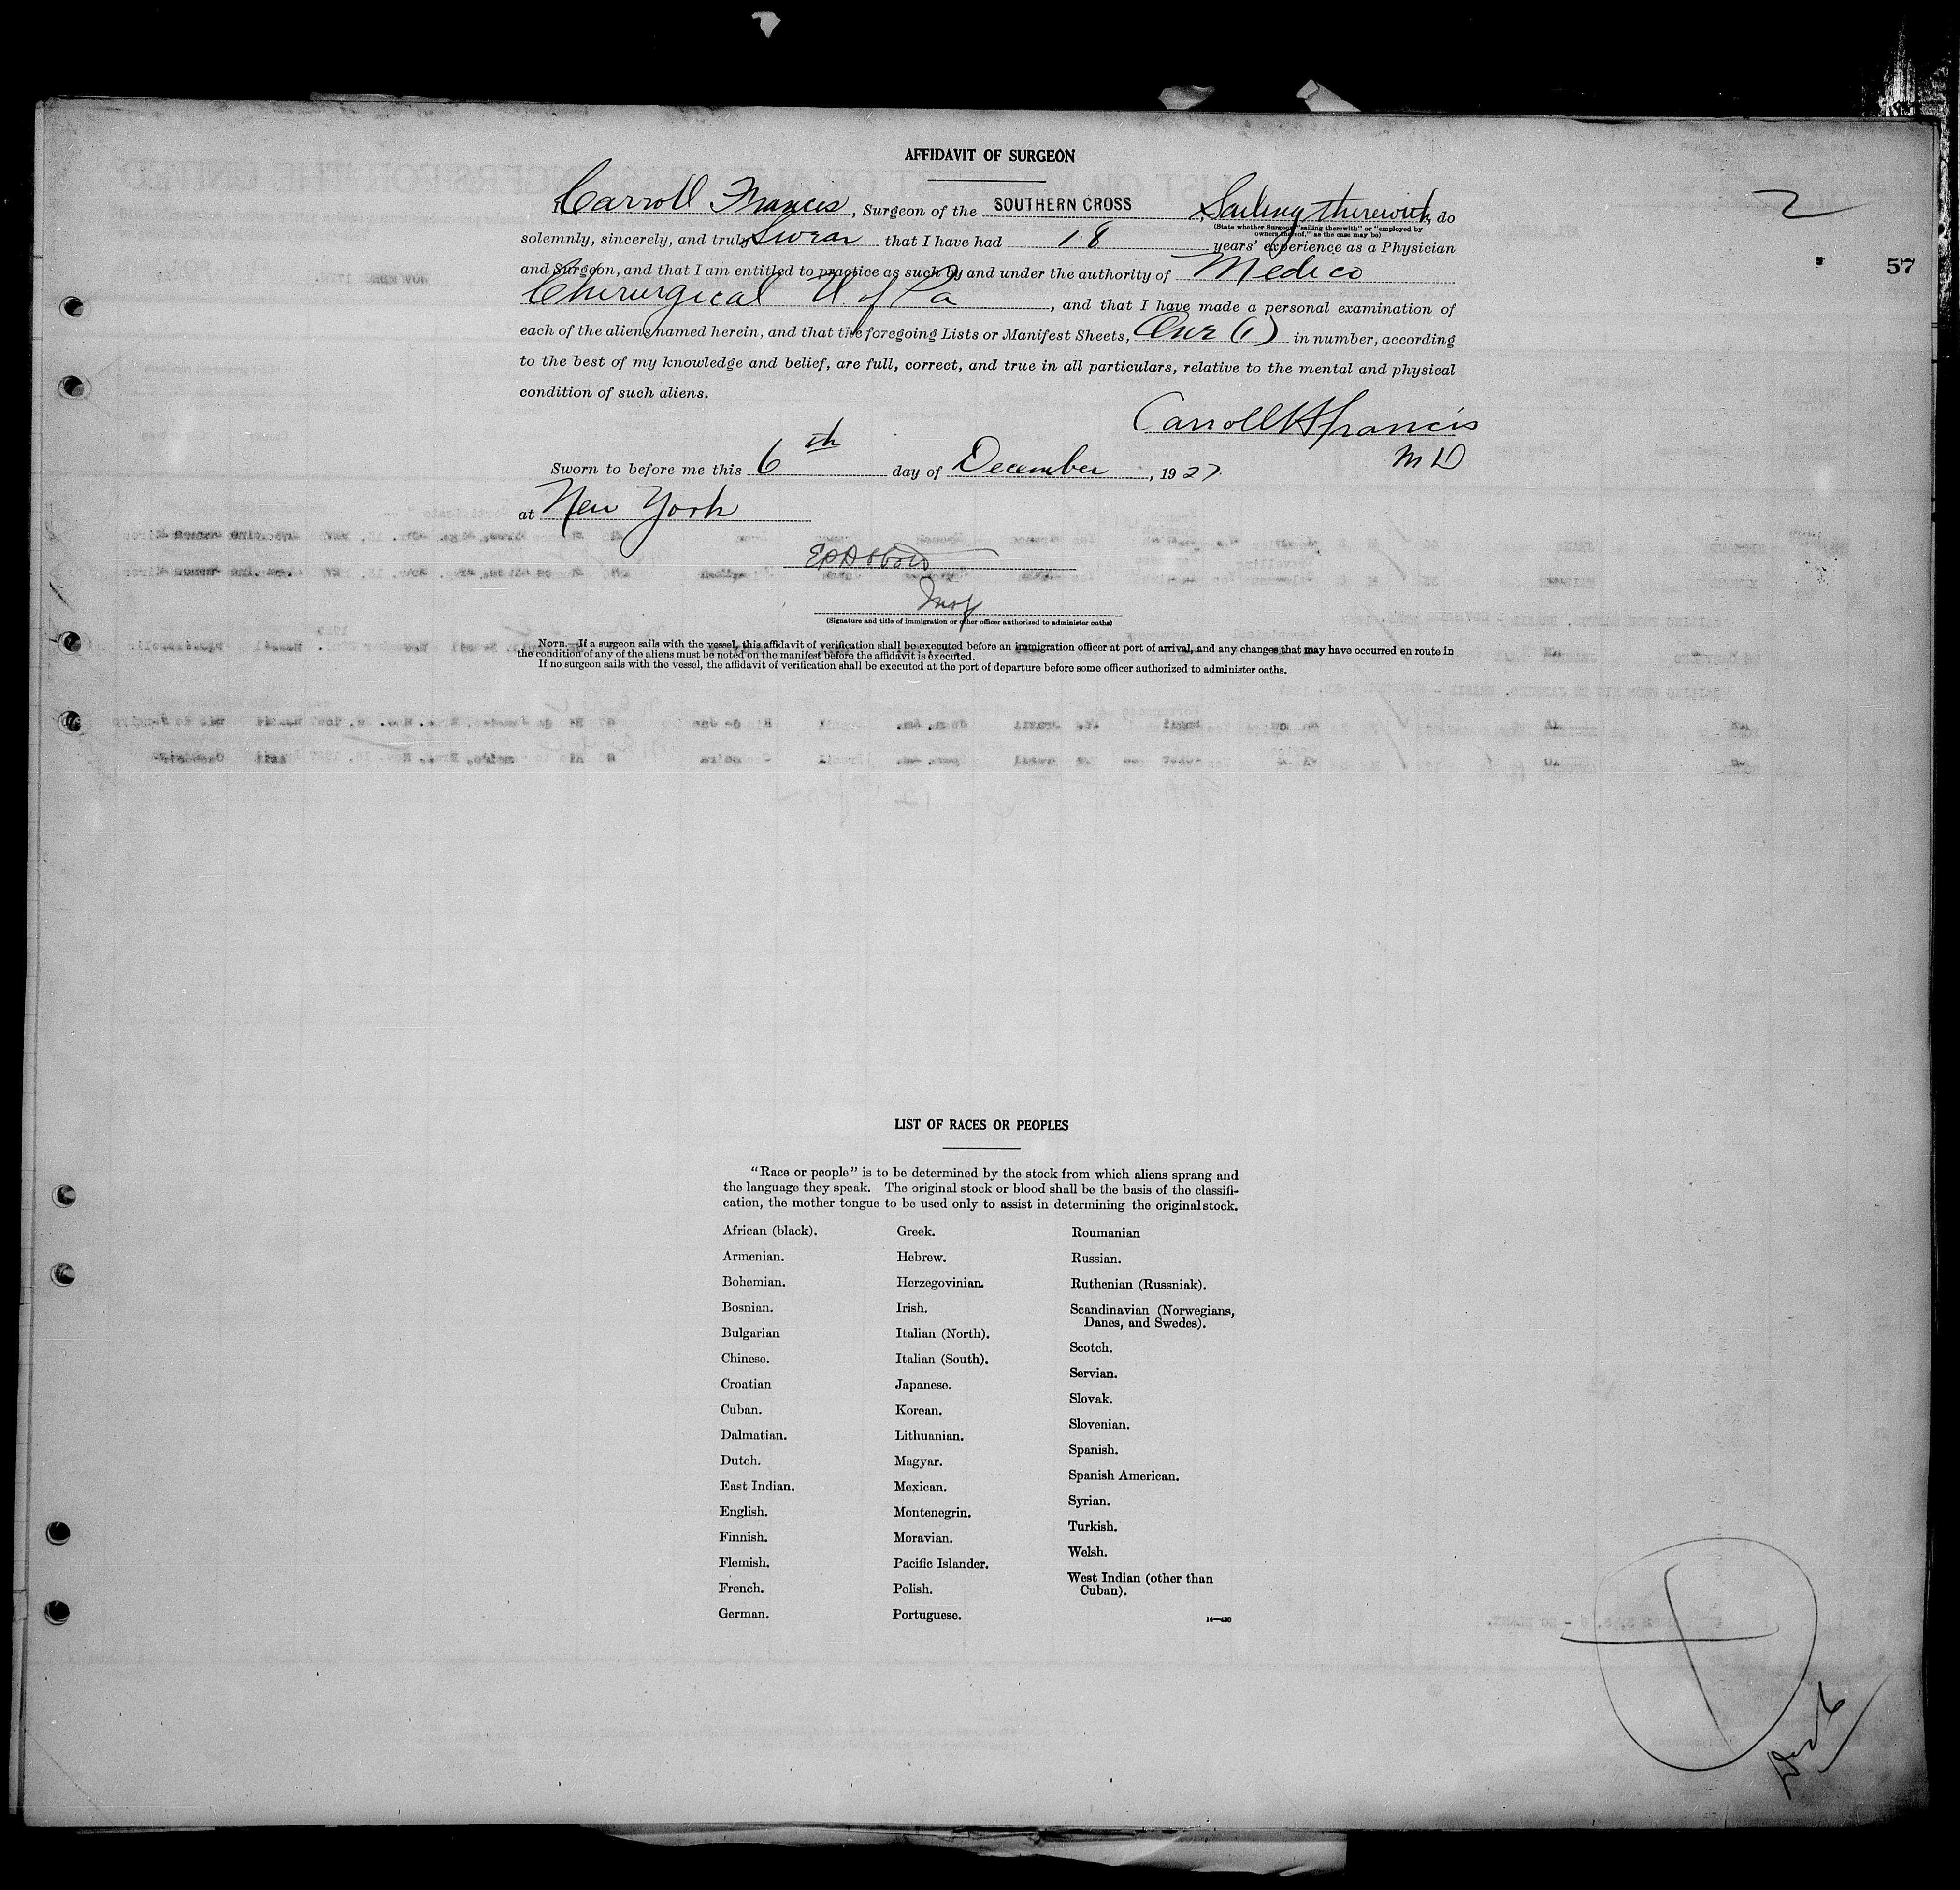 AFFIDAVIT OF SURGEON
2
I Carroll Francis, Surgeon of the SOUTHERN CROSS, Sailing therewith, do
(State whether Surgeon "sailing therewith" or "employed by
owners thereof," as the case may be)
solemnly, sincerely, and truly Swear that I have had 18 years' experience as a Physician
and Surgeon, and that I am entitled to practice as such by and under the authority of Medico
57
Chirurgical U. of Pa, and that I have made a personal examination of
each of the aliens named herein, and that the foregoing Lists or Manifest Sheets, One (1) in number, according
to the best of my knowledge and belief, are full, correct, and true in all particulars, relative to the mental and physical
condition of such aliens.
Carroll H Francis
M D
Sworn to before me this 6th day of December, 1927.
at New York
Insp
(Signature and title of immigration or other officer authorized to administer oaths)
NOTE.—If a surgeon sails with the vessel, this affidavit of verification shall be executed before an immigration officer at port of arrival, and any changes that may have occurred en route in
the condition of any of the aliens must be noted on the manifest before the affidavit is executed.
If no surgeon sails with the vessel, the affidavit of verification shall be executed at the port of departure before some officer authorized to administer oaths.
LIST OF RACES OR PEOPLES
"Race or people" is to be determined by the stock from which aliens sprang and
the language they speak. The original stock or blood shall be the basis of the classifi-
cation, the mother tongue to be used only to assist in determining the original stock.
African (black).
Armenian.
Bohemian.
Bosnian.
Bulgarian
Chinese.
Croatian
Cuban.
Dalmatian.
Dutch.
East Indian.
English.
Finnish.
Flemish.
French.
German.
Greek.
Hebrew.
Herzegovinian.
Irish.
Italian (North).
Italian (South).
Japanese.
Korean.
Lithuanian.
Magyar.
Mexican.
Montenegrin.
Moravian.
Pacific Islander.
Polish.
Portuguese.
Roumanian
Russian.
Ruthenian (Russniak).
Scandinavian (Norwegians,
Danes, and Swedes).
Scotch.
Servian.
Slovak.
Slovenian.
Spanish.
Spanish American.
Syrian.
Turkish.
Welsh.
West Indian (other than
Cuban).
14—430